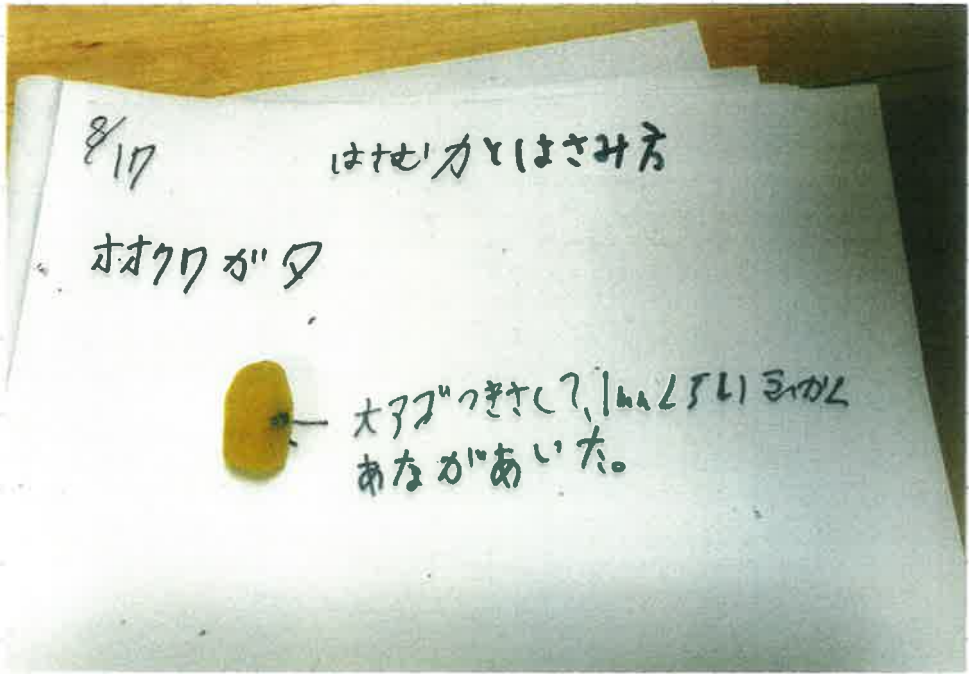 8/17
はさむ力とはさみ方
オオクワガタ
大アゴつきさして、1mmくらい
あながあいた。